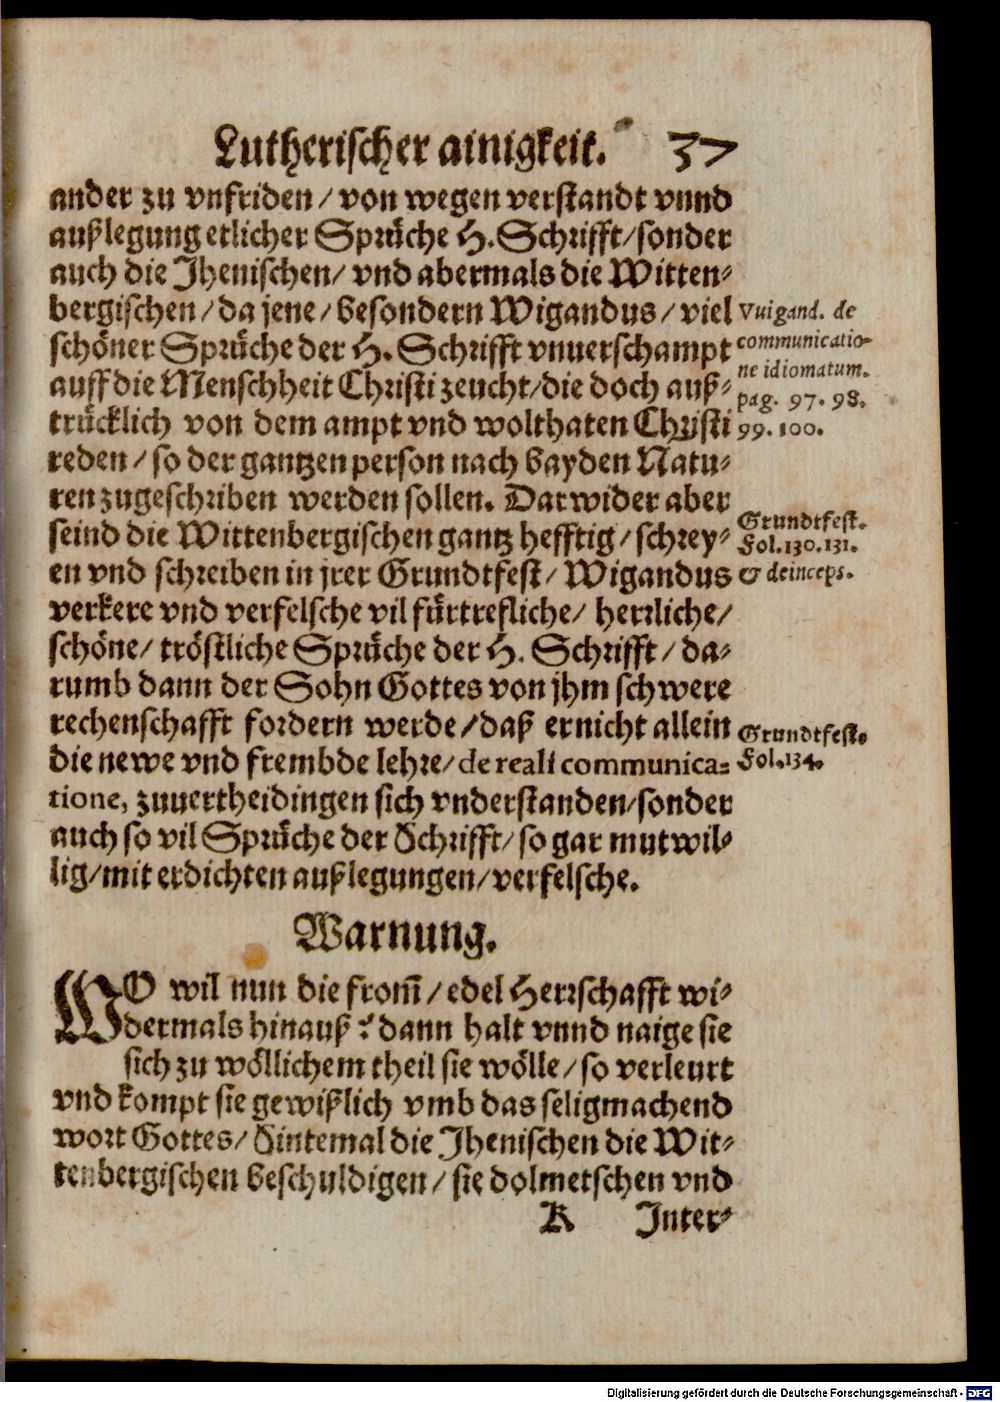 Lutherischer ainigkeit. 37
ander zu vnfriden / von wegen verstandt vnnd
außlegung etlicher Sprüche H. Schrifft / sonder
auch die Jhenischen / vnd abermals die Witten-
bergischen / da jene / besondern Wigandus / viel
schöner Sprüche der H. Schrifft vnuerschampt
auff die Menschheit Christi zeucht / die doch auß-
trücklich von dem ampt vnd wolthaten Christi
reden / so der gantzen person nach bayden Natu-
ren zugeschriben werden sollen. Darwider aber
seind die Wittenbergischen gantz hefftig / schrey-
en vnd schreiben in jrer Grundtfest / Wigandus
verkere vnd verfelsche vil fürtrefliche / herrliche /
schöne / tröstliche Sprüche der H. Schrifft / da-
rumb dann der Sohn Gottes von jhm schwere
rechenschafft fordern werde / daß er nicht allein
die newe vnd frembde lehre / de reali communica-
tione, zuuertheidingen sich vnderstanden / sonder
auch so vil Sprüche der Schrifft / so gar mutwil-
lig / mit erdichten außlegungen / verfelsche.
Vuigand. de
communicatio-
ne idiomatum.
pag. 97. 98.
99. 100.
Grundtfest.
Fol. 130. 131.
& deinceps.
Grundtfest.
Fol. 134.
Warnung.
WO wil nun die from̃ / edel Herrschafft wi-
dermals hinauß? dann halt vnnd naige sie
sich zu wöllichem theil sie wölle / so verleurt
vnd kompt sie gewißlich vmb das seligmachend
wort Gottes / Sintemal die Jhenischen die Wit-
tenbergischen beschuldigen / sie dolmetschen vnd
K Inter-
Digitalisierung gefördert durch die Deutsche Forschungsgemeinschaft - DFG